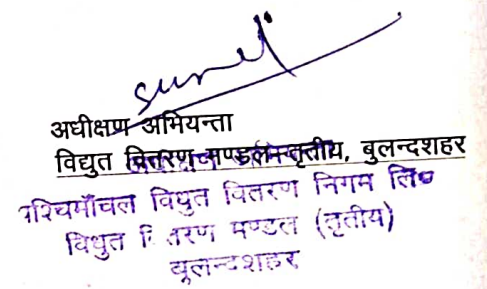 sunel
अधीक्षण अभियन्ता
विद्युत वितरण मण्डल-तृतीय, बुलन्दशहर
पश्चिमाँचल विधुत वितरण निगम लि०
विधुत वितरण मण्डल (तृतीय)
बुलन्दशहर